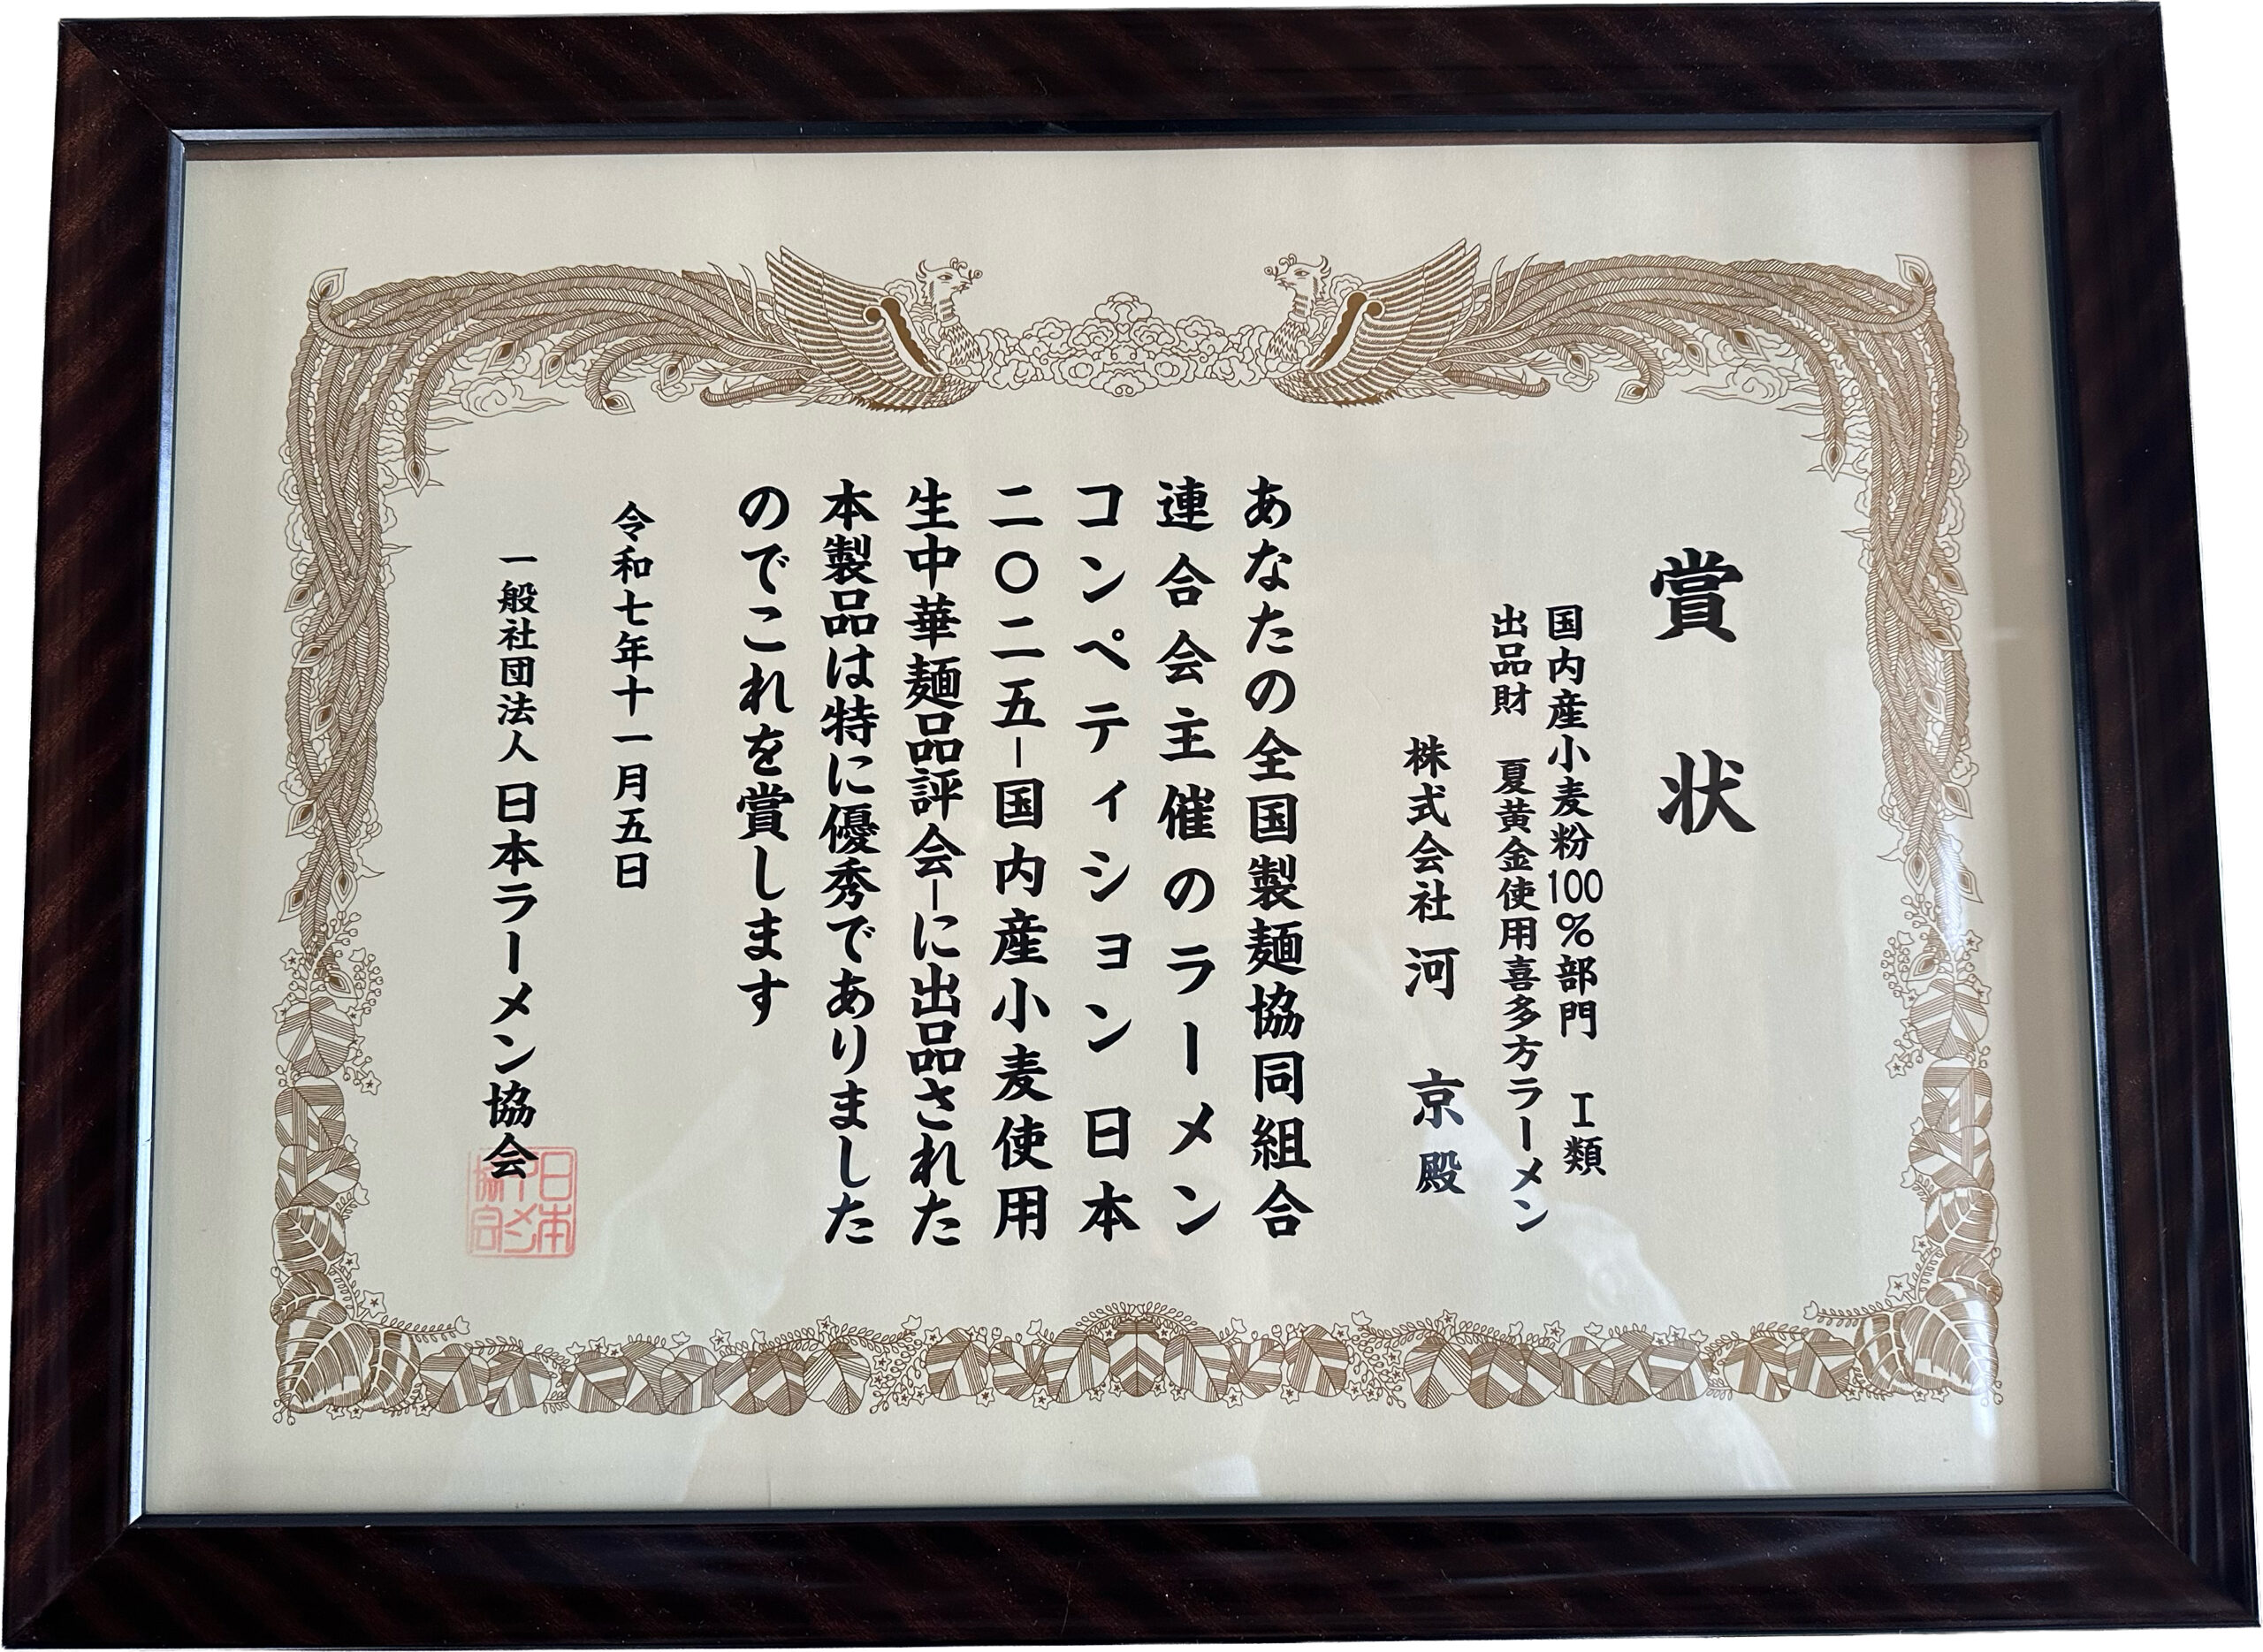 賞状
国内産小麦粉100%部門 Ⅰ類
出品財 夏黄金使用喜多方ラーメン
株式会社 河京殿
あなたの全国製麺協同組合
連合会主催のラーメン
コンペティション日本
二〇二五-国内産小麦使用
生中華麺品評会-に出品された
本製品は特に優秀でありました
のでこれを賞します
令和七年十一月五日
一般社団法人 日本ラーメン協会
日本
ラーメン
協会